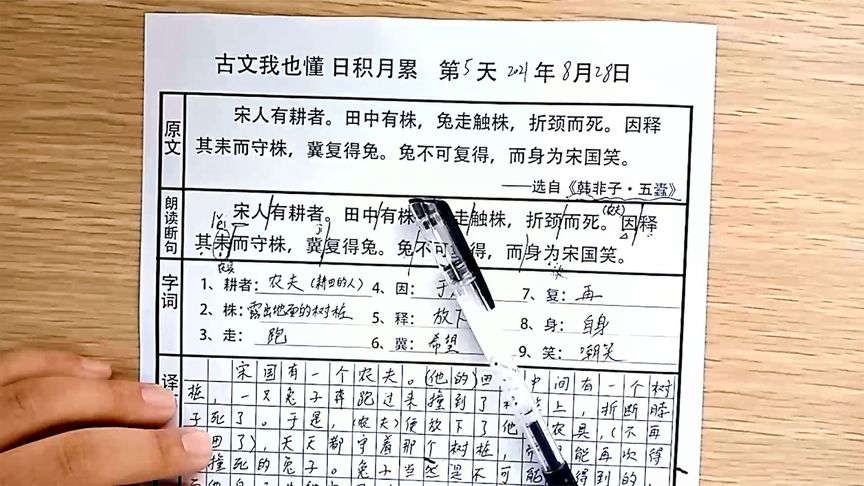 古文我也懂 日积月累 第5天 2021年8月28日
原文
宋人有耕者。田中有株，兔走触株，折颈而死。因释
其耒而守株，冀复得兔。兔不可复得，而身为宋国笑。
——选自《韩非子·五蠹》
朗读断句
宋人/有耕者。田中/有株 走/触株，折颈/而死。因/释
lěi
其耒/而守株，冀/复得兔。兔/不可 得，而/身为宋国笑。
农具
字词
1、耕者：农夫（耕田的人） 4、因：于 7、复：再
2、株：露出地面的树桩 5、释：放下 8、身：自身
3、走：跑 6、冀：希望 9、笑：嘲笑
译
宋国有一个农夫。（他的）田 中间有一个树
桩，一只兔子奔跑过来撞到了 上，折断脖
子死了。于是，（农夫）便放下了他 农具，（不再
田了），天天都守着那个树桩， 能再次得
撞死的兔子。兔子当然是不可能 得到的，